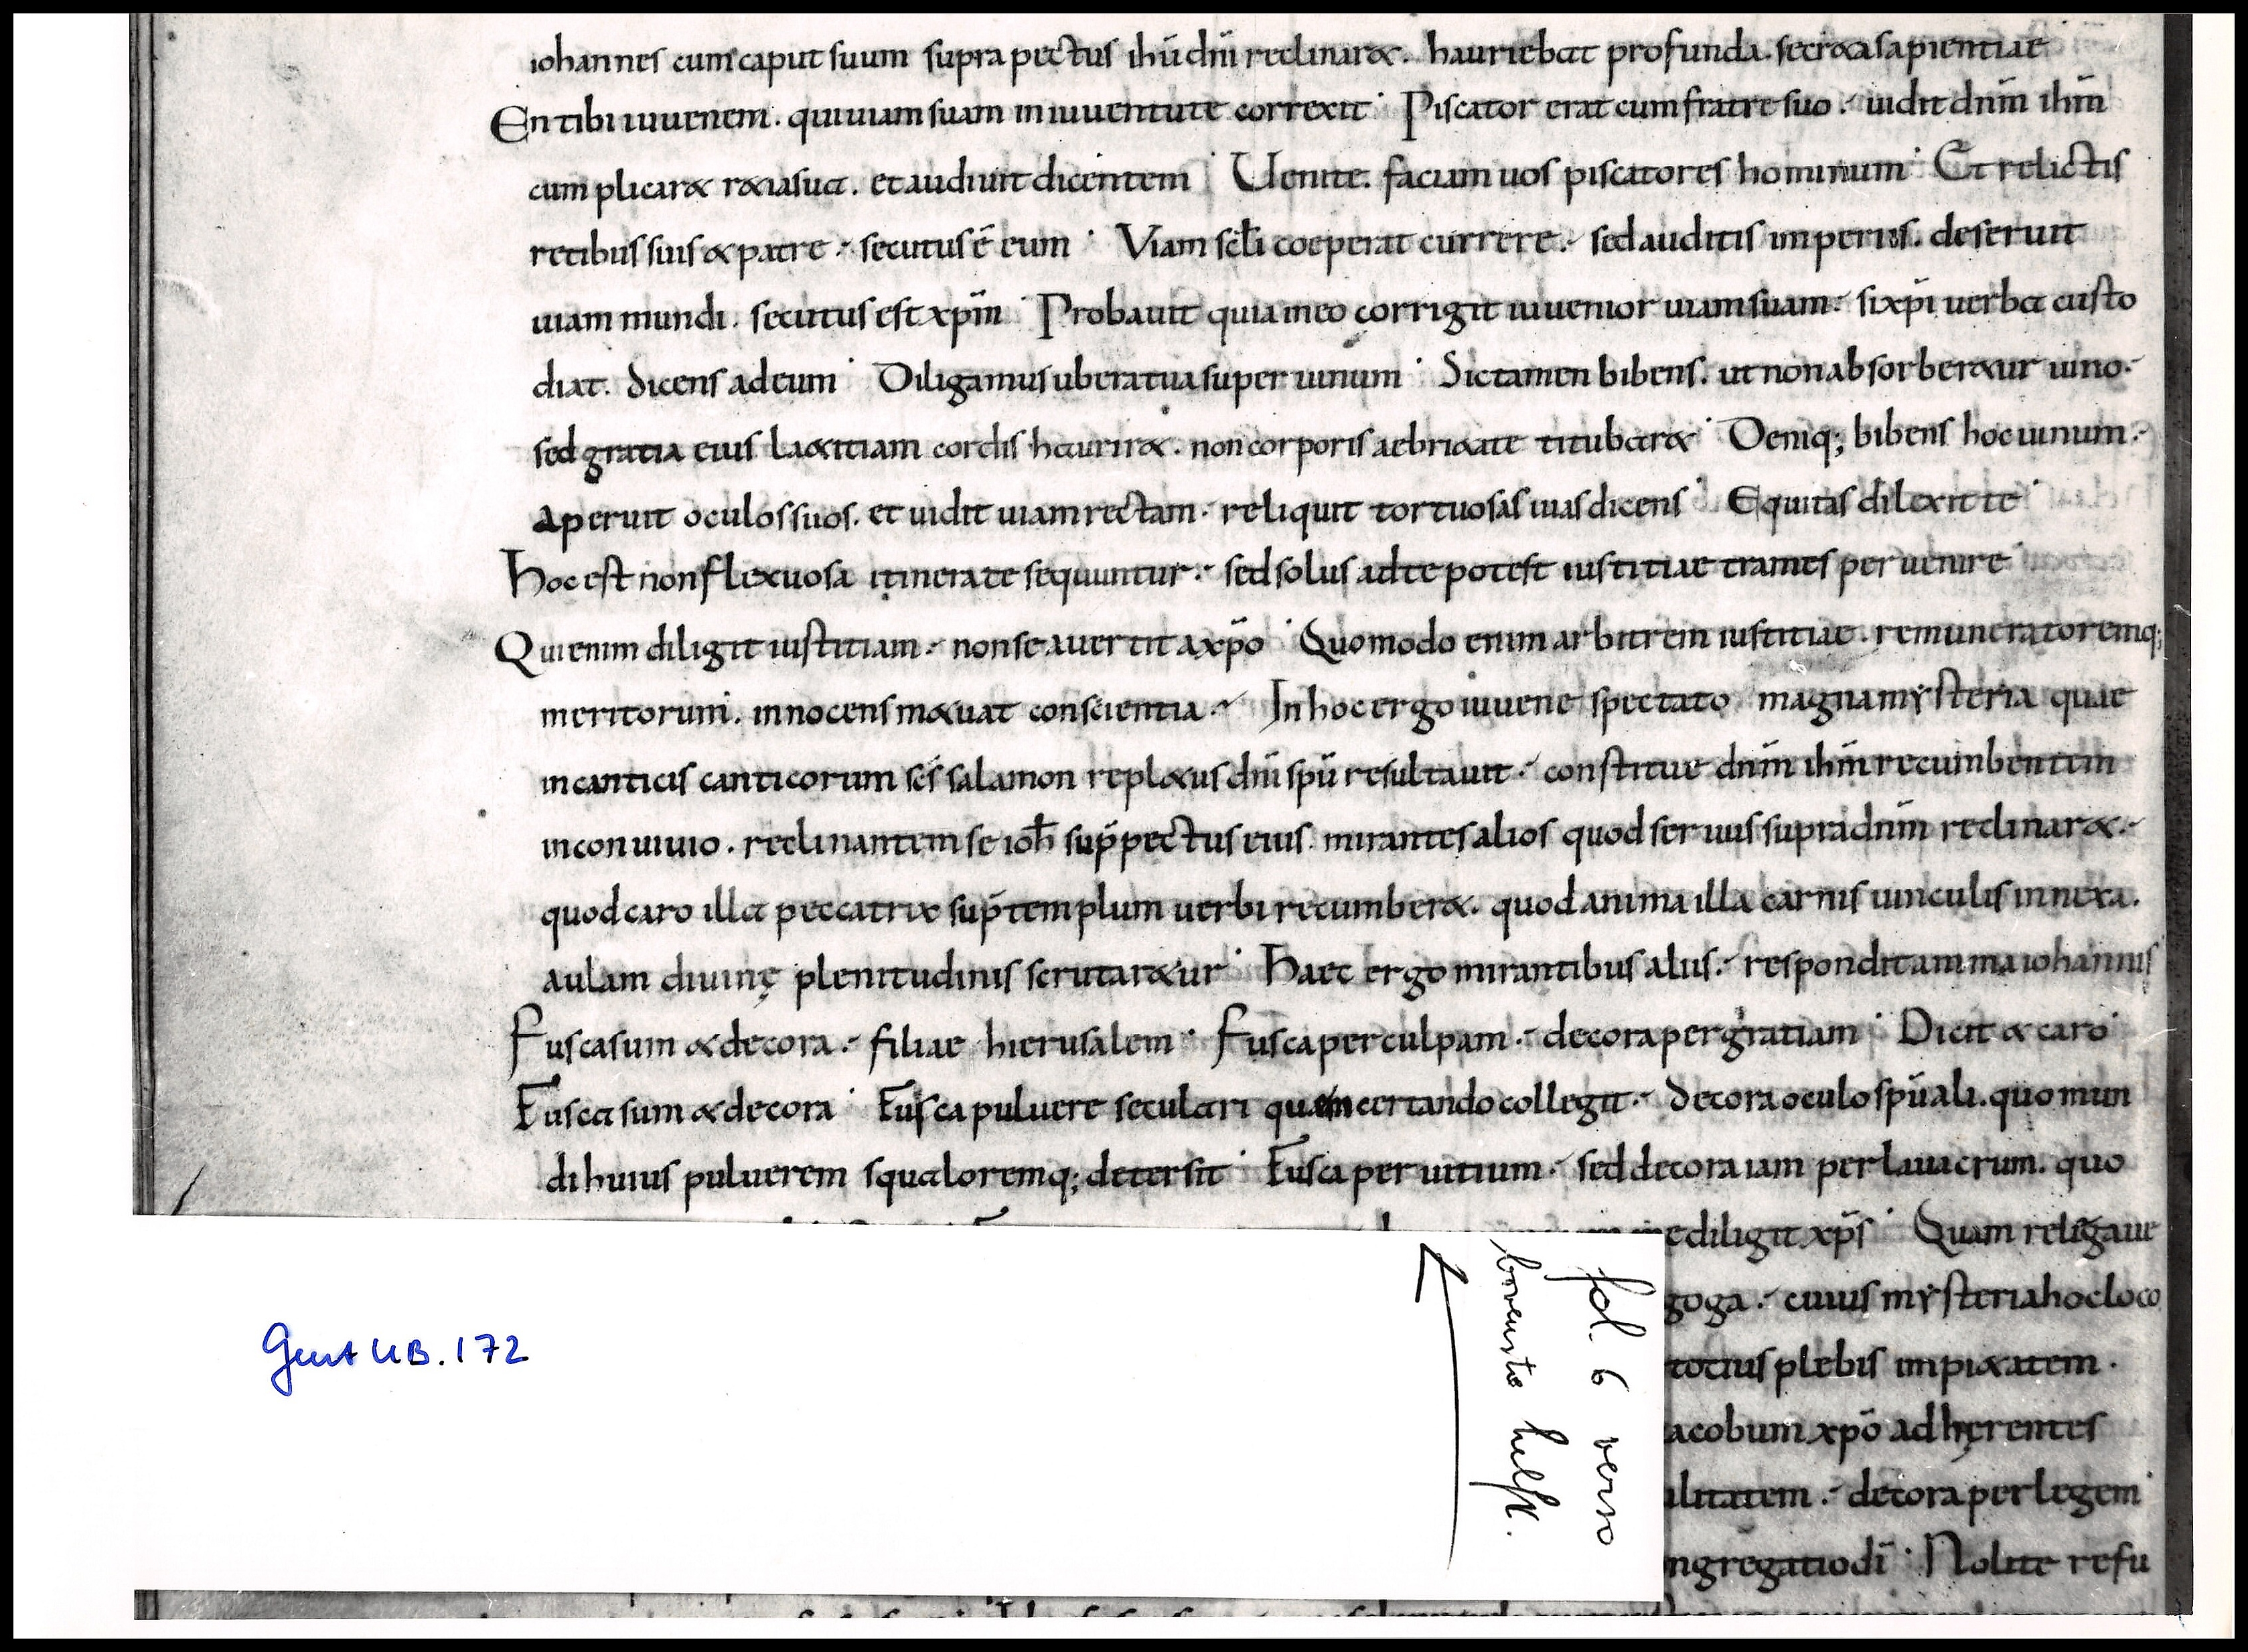 iohannes cum caput suum supra pectus ihū dnī reclinaret. hauriebat profunda secreta sapientiae
En tibi iuuenem. qui uiam suam in iuuentute correxit· Piscator erat cum fratre suo. uidit dnm̄ ihm̄
cum plicaret retia sua. et audiuit dicentem· Uenite. faciam uos piscatores hominum· Et relictis
retibus suis & patre. secutus ē eum· Viam scl̄i coeperat currere. sed auditis imperiis. deseruit
uiam mundi. secutus est xpm̄· Probauit quia in eo corrigit iuuenior uiam suam. si xpī uerba custo
diat. dicens ad eum· Diligamus ubera tua super uinum· Dictamen bibens. ut non absorberetur uino.
sed gratia eius laetitiam cordis hauriret. non corporis aebrietate titubaret· Deniq; bibens hoc uinum.
aperuit oculos suos. et uidit uiam rectam. reliquit tortuosas uias dicens· Equitas dilexit te·
Hoc est non flexuosa itinera te sequuntur. sed solus ad te potest iustitiae trames peruenire·
Qui enim diligit iustitiam. non se auertit a xpō· Quomodo enim arbitrem iustitiae. remuneratoremq;
meritorum. innocens metuat conscientia. In hoc ergo iuuene spectato magna mysteria quae
in canticis canticorum scs̄ salamon repletus dnī spū resultauit. constitue dnm̄ ihm̄ recumbentem
in conuiuio. reclinantem se ioh̄ sup̄ pectus eius. mirantes alios quod seruus supra dnm̄ reclinaret.
quod caro illa peccatrix sup̄ templum uerbi recumberet. quod anima illa carnis uinculis innexa.
aulam diuinę plenitudinis scrutaretur· Haec ergo mirantibus aliis. respondit anima iohannis
Fusca sum & decora. filiae hierusalem· Fusca per culpam. decora per gratiam· Dicit & caro·
Fusca sum & decora· Fusca puluere seculari quem certando collegit. decora oculo spūali. quo mun
di huius puluerem squaloremq; detersit· Fusca per uitium. sed decora iam per lauacrum. quo
me diligit xps̄· Quam religaue
goga. cuius mysteria hoc loco
totius plebis impietatem.
acobum xpō adhęrentes
alitatem. decora per legem
ngregatio dī· Nolite refu
Gent UB. 172
fol. 6 verso
bovenste helft.